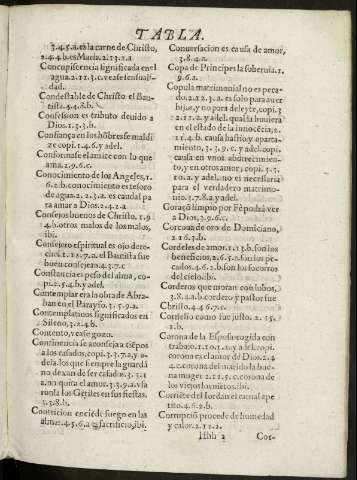 TABLA.
3.4.5.a. es la carne de Christo,
2.4.4.b. es Maria. 2.13.1.a
Concupiscencia significada en el
agua. 2.11.3.c. vease sensuali-
dad.
Condestable de Christo el Bau-
tista. 4.4.8.b.
Confession es tributo devido a
Dios. 1.3.3.b.
Confiança en los hõbres se maldi
ze copi. 1.4.6. y adel.
Conformase el amãte con lo que
ama. 2.9.6.c.
Conocimiento de los Angeles, 1.
6.2.b. conocimiento es tesoro
de agua. 2.2.3.a. es caudal pa
ra amar a Dios. 2.4.2.a
Consejos buenos de Christo. 1.9
4.b. otros malos de los malos,
ibi.
Consejero espiritual es ojo dere-
cho. 1.12.7.a. el Bautista fue
buen consejero. 4.3.7.c
Constancia es peso del alma, co-
pi. 2.5.4.b. y adel.
Contemplar era la obra de Abra-
han en el Parayso. 3.5.9.a.
Contemplatiuos significados en
Sileno, 3.2.4.b.
Contento, vease gozo.
Continencia se aconseja a tiẽpos
a los casados, copi. 3.3.7.a, y a-
dela. los que siempre la guardã
no dexan de ser casados. 3.3.1
2. no quita el amor. 3.3.9.a. vsa
ron la los Gẽtiles en sus fiestas.
3.3.8.b.
Contricion enciẽde fuego en las
almas. 4.5.6.a es sacrificio, ibi.
Conuersacion es causa de amor,
3.8.4.a.
Copa de Principes la soberuia. 1.
9.6.a.
Copula matrimonial no es peca-
do. 2.12.3.a. es solo para auer
hijos, y no para deleyte, copi. 3
1.12.a. y adel. qual la huuiera
en el estado de la innocẽcia, 2.
11.4.b. causa hastio y aparta-
miento, 3.3.9.c. y adel. copi.
causa en vnos aborrecimien-
to, y en otros amor, copi. 3.3.
10.a. y adel. no es necessaria
para el verdadero matrimo-
nio. 3.7.8.a. y adel.
Coraçõ limpio por Fè podrà ver
a Dios, 3.9.6.c.
Corcoua de oro de Domiciano,
2.16.3.b.
Cordeles de amor. 1.13.b. son los
beneficios, 2.6.5.a. son los pe-
cados. 4.6.2.b. son los socorros
del cielo. ibi.
Corderos que moran con lobos,
3.8.4.a.b. cordero y pastor fue
Christo. 4.4.6.7.c.
Cornelio como fue justo. 2.15.
2.b.
Corona de la Esposa cogida con
trabajo. 1.10.1.a. y adel. copi.
corona es el amor de Dios. 2.4
4.c. corona del marido la bue-
na muger. 2.11.5.c. corona de
los viejos los nietos. ibi.
Corriẽte del Iordan el carnal ape
tito. 4.6.2.b.
Corrupciõ procede de humedad
y calor. 2.11.2.
Hhh 2 Cos-